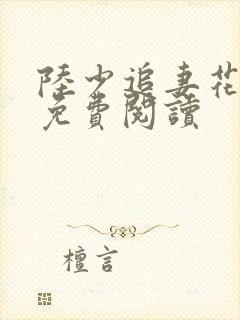 陸少追妻花
免費閱讀
檀言